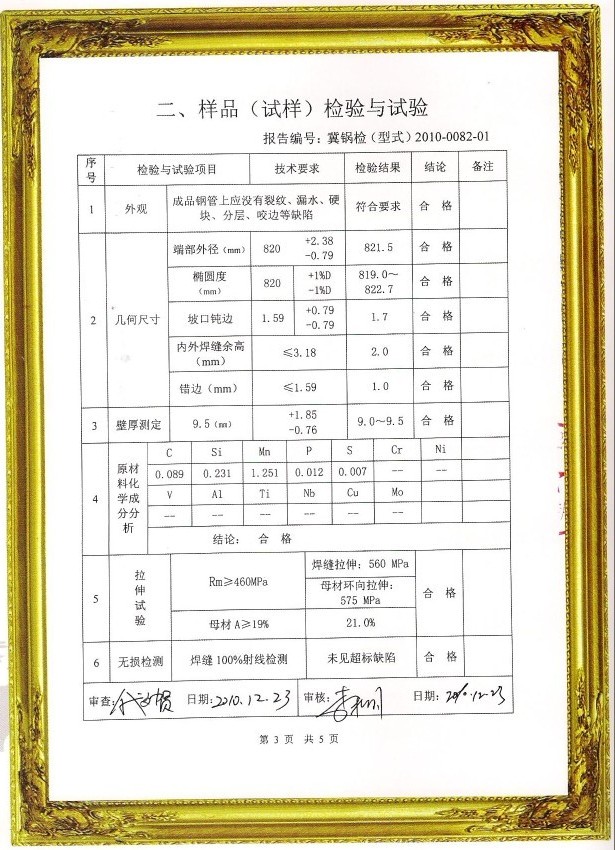 二、样品（试样）检验与试验
报告编号：冀锅检（型式）2010-0082-01
序号 检验与试验项目 技术要求 检验结果 结论 备注
1 外观 成品钢管上应没有裂纹、漏水、硬块、分层、咬边等缺陷 符合要求 合 格
2 几何尺寸 端部外径（mm） 820 +2.38 -0.79 821.5 合 格
椭圆度（mm） 820 +1%D -1%D 819.0～822.7 合 格
坡口钝边 1.59 +0.79 -0.79 1.7 合 格
内外焊缝余高（mm） ≤3.18 2.0 合 格
错边（mm） ≤1.59 1.0 合 格
3 壁厚测定 9.5（mm） +1.85 -0.76 9.0～9.5 合 格
4 原材料化学成分分析 C Si Mn P S Cr Ni
0.089 0.231 1.251 0.012 0.007 -- --
V Al Ti Nb Cu Mo
-- -- -- -- -- --
结论： 合 格
5 拉伸试验 Rm≥460MPa 焊缝拉伸：560 MPa
母材环向拉伸：575 MPa 合 格
母材 A≥19% 21.0%
6 无损检测 焊缝 100%射线检测 未见超标缺陷 合 格
审查： 日期：2010.12.23 审核： 日期：2010.12.23
第 3 页 共 5 页